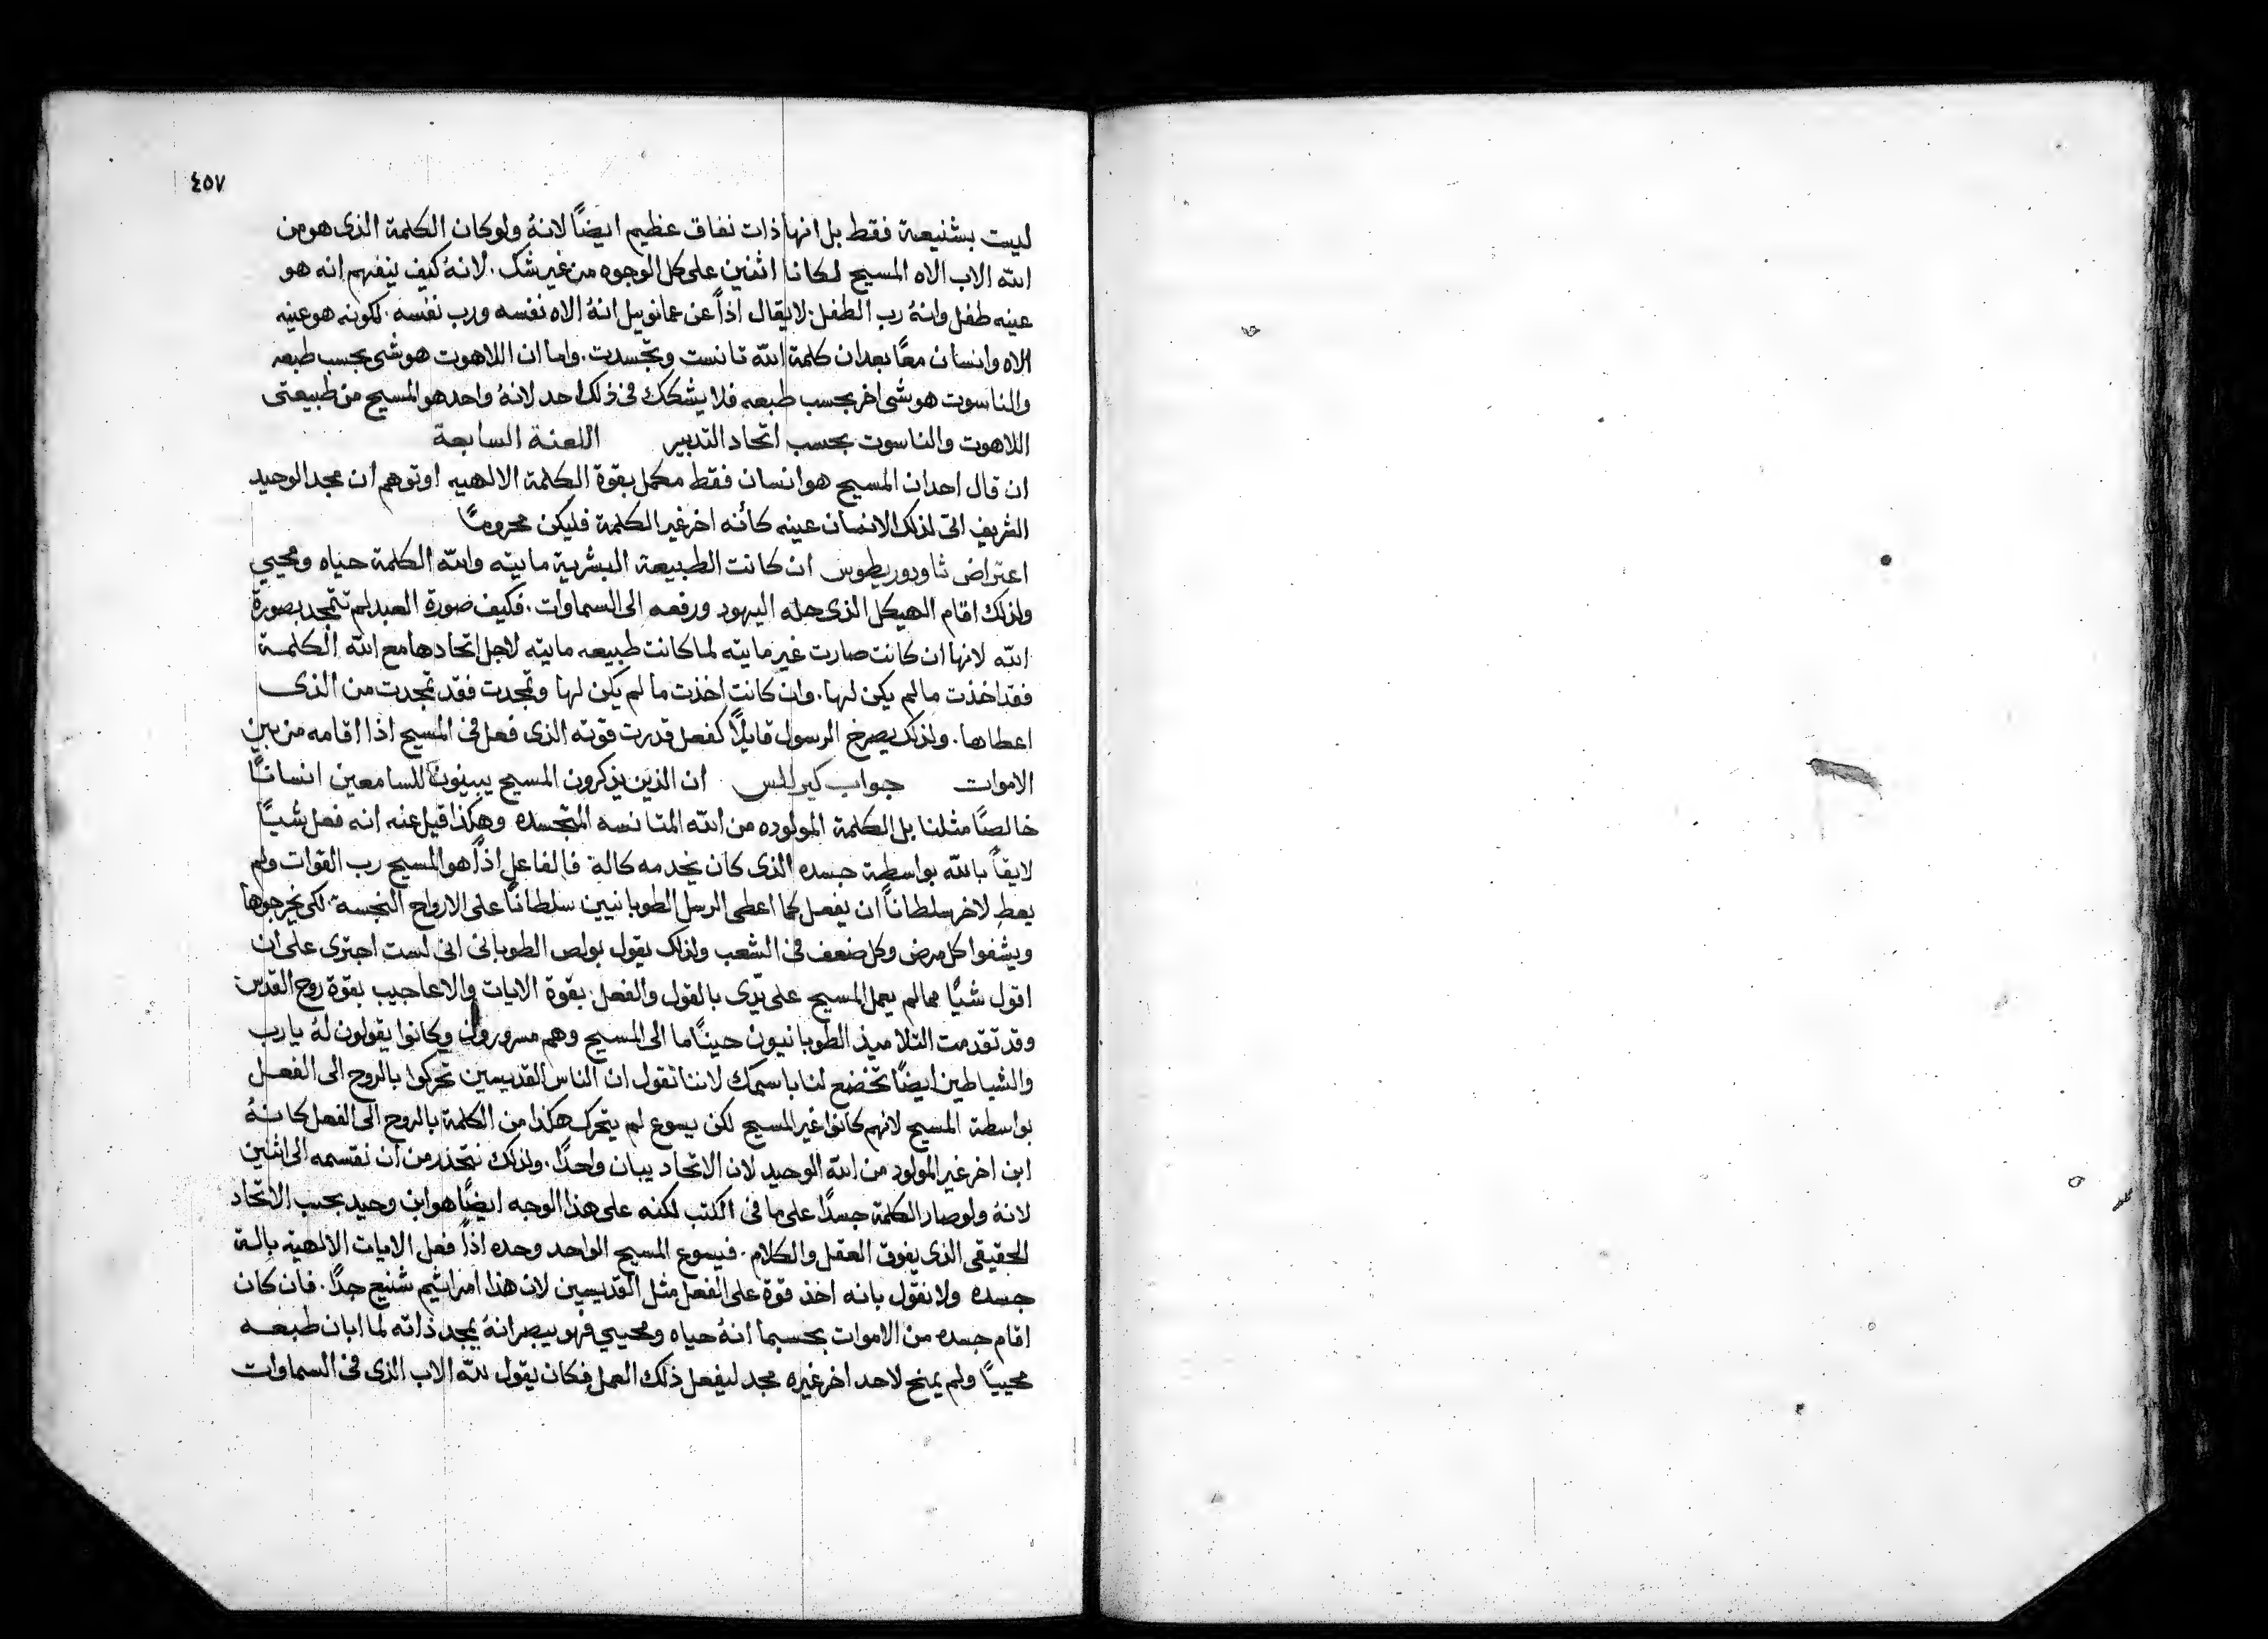 ٤٥٧
ليست بشنيعة فقط بل انها ذات نفاق عظيم ايضًا لانهُ ولو كان الكلمة الذى هو من
الله الاب الاه المسيح لكانا اثنين على كل الوجوه من غير شك. لانهُ كيف ينفهم انه هو
عينه طفل وانهُ رب الطفل. لا يقال اذاً عن عمانوييل انهُ الاه نفسه ورب نفسه. لكونه هو عينه
الاه وانسان معًا بعد ان كلمة الله تانست وتجسدت. واما ان اللاهوت هو شى بحسب طبعه
والناسوت هو شى اخر بحسب طبعه فلا يشكك فى ذلك احد لانهُ واحد هو المسيح من طبيعتى
اللاهوت والناسوت بحسب اتحاد التدبير اللعنة السابعة
ان قال احد ان المسيح هو انسان فقط مكمل بقوة الكلمة الالهيه او توهم ان مجد الوحيد
الشريف اتى لذلك الانسان عينه كأنه اخر غير الكلمة فليكن محرومًا
اعتراض ثاودوريطوس ان كانت الطبيعة البشرية مايته والله الكلمة حياه ومحيي
ولذلك اقام الهيكل الذى حله اليهود ورفعه الى السماوات. فكيف صورة العبد لم تتمجد بصورة
الله لانها ان كانت صارت غير مايته لما كانت طبيعه مايته لاجل اتحادها مع الله الكلمة
فقد اخذت ما لم يكن لها. وان كانت اخذت ما لم يكن لها وتمجدت فقد تمجدت من الذى
اعطاها. ولذلك يصرخ الرسول قايلًا كفعل قدرت قوته الذى فعل فى المسيح اذا اقامه من بين
الاموات جواب كيرللس ان الذين يذكرون المسيح يبينون للسامعين انسانًا
خالصًا مثلنا بل الكلمة المولوده من الله المتانسه المتجسده وهكذا قيل عنه انه فعل شيًا
لايقاً بالله بواسطة جسده الذى كان يخدمه كالة فالفاعل اذاً هو المسيح رب القوات ولم
يعطِ لاخر سلطاناً ان يفعل كما اعطى الرسل الطوبانيين سلطانًا على الارواح النجسة لكى يخرجوها
ويشفوا كل مرض وكل ضعف فى الشعب ولذلك يقول بولص الطوبانى انى لست اجترى على ان
اقول شيًا مما لم يعمل المسيح على يدّى بالقول والفعل بقوة الايات والاعاجيب بقوة روح القدس
وقد تقدمت التلاميذ الطوبانيون حينًا ما الى المسيح وهم مسرورون وكانوا يقولون لهُ يا رب
والشياطين ايضًا تخضع لنا باسمك لاننا نقول ان الناس القديسين تحركوا بالروح الى الفعل
بواسطة المسيح لانهم كانوا غير المسيح لكن يسوع لم يتحرك هكذا من الكلمة بالروح الى الفعل كانهُ
ابن اخر غير المولود من الله الوحيد لان الاتحاد يبان واحدًا. ولذلك نتحذر من ان نقسمه الى اثنين
لانهُ ولو صار الكلمة جسدًا على ما فى الكتب لكنه على هذا الوجه ايضًا هو ابن وحيد بحسب الاتحاد
الحقيقى الذى يفوق العقل والكلام. فيسوع المسيح الواحد وحده اذاً فعل الايات الالهية بالة
جسده ولا نقول بانه اخذ قوة على الفعل مثل القديسين لان هذا امر اثيم شنيع جدًا. فان كان
اقام جسده من الاموات بحسبما انهُ حياه ومحيي فهو يبصر انهُ يمجد ذاته لما ابان طبعه
محييًا ولم يمنح لاحد اخر غيره مجد ليفعل ذلك العمل فكان يقول لله الاب الذى فى السماوات